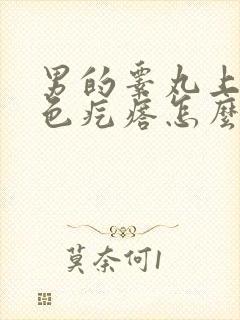 男的睾丸上
色疙瘩怎麼
莫奈何1